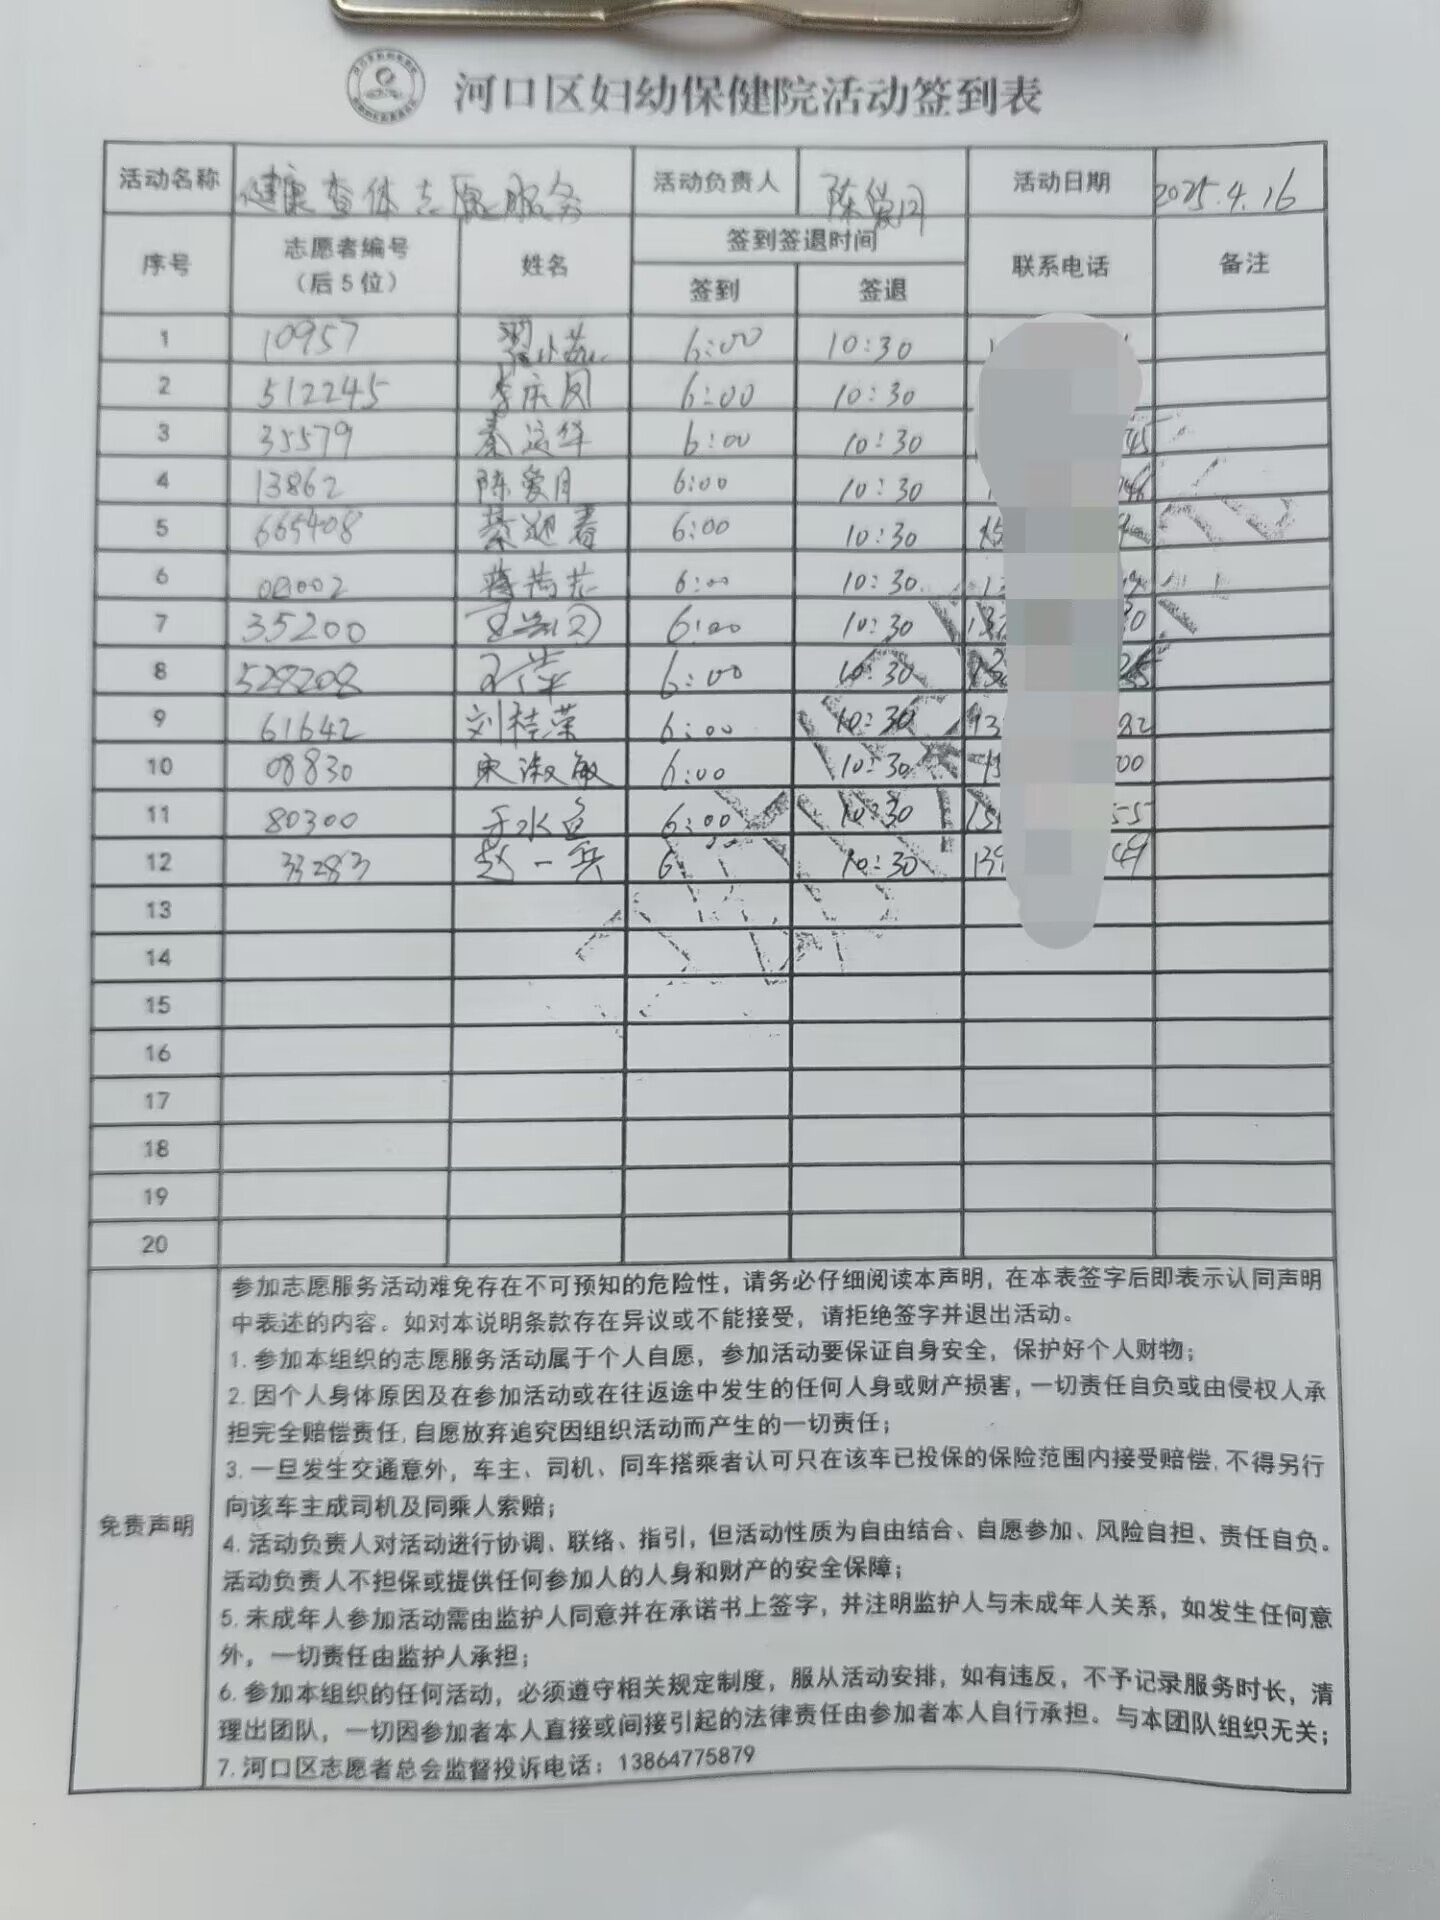 河口区妇幼保健院活动签到表
活动名称 健康查体志愿服务 活动负责人 陈爱月 活动日期 2025.4.16
序号 志愿者编号（后5位） 姓名 签到签退时间 联系电话 备注
签到 签退
1 10957 6:00 10:30
2 512245 李庆凤 6:00 10:30
3 35579 秦运华 6:00 10:30
4 13862 陈爱月 6:00 10:30
5 665408 綦迎春 6:00 10:30
6 6:00 10:30
7 35200 6:00 10:30
8 528208 6:00 10:30
9 61642 刘桂荣 6:00 10:30
10 08830 宋淑敏 6:00 10:30
11 80300 6:00 10:30
12 33283 赵一兵 6: 10:30
13
14
15
16
17
18
19
20
免责声明
参加志愿服务活动难免存在不可预知的危险性，请务必仔细阅读本声明，在本表签字后即表示认同声明
中表述的内容。如对本说明条款存在异议或不能接受，请拒绝签字并退出活动。
1. 参加本组织的志愿服务活动属于个人自愿，参加活动要保证自身安全，保护好个人财物；
2. 因个人身体原因及在参加活动或在往返途中发生的任何人身或财产损害，一切责任自负或由侵权人承
担完全赔偿责任, 自愿放弃追究因组织活动而产生的一切责任；
3. 一旦发生交通意外，车主、司机、同车搭乘者认可只在该车已投保的保险范围内接受赔偿, 不得另行
向该车主成司机及同乘人索赔；
4. 活动负责人对活动进行协调、联络、指引，但活动性质为自由结合、自愿参加、风险自担、责任自负。
活动负责人不担保或提供任何参加人的人身和财产的安全保障；
5. 未成年人参加活动需由监护人同意并在承诺书上签字，并注明监护人与未成年人关系，如发生任何意
外，一切责任由监护人承担；
6. 参加本组织的任何活动，必须遵守相关规定制度，服从活动安排，如有违反，不予记录服务时长，清
理出团队，一切因参加者本人直接或间接引起的法律责任由参加者本人自行承担。与本团队组织无关；
7. 河口区志愿者总会监督投诉电话：13864775879